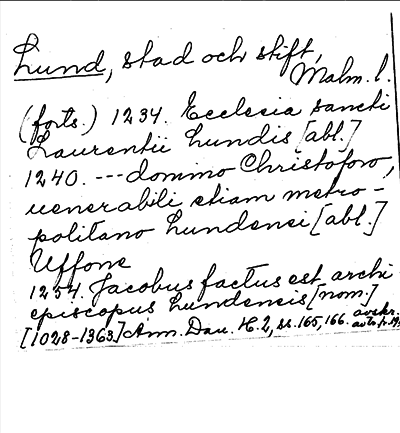 Lund, stad och stift,
Malm. l.
(forts.) 1234. Ecclesia sancti
Laurentii Lundis [abl.]
1240. --- domino Christoforo,
uenerabili etiam metro-
politano Lundensi [abl.]
Uffone
1254. Jacobus factus est archi
episcopus Lundensis [nom.]
[1028-1363] Ann. Dan. H. 2, ss. 165, 166. avskr.